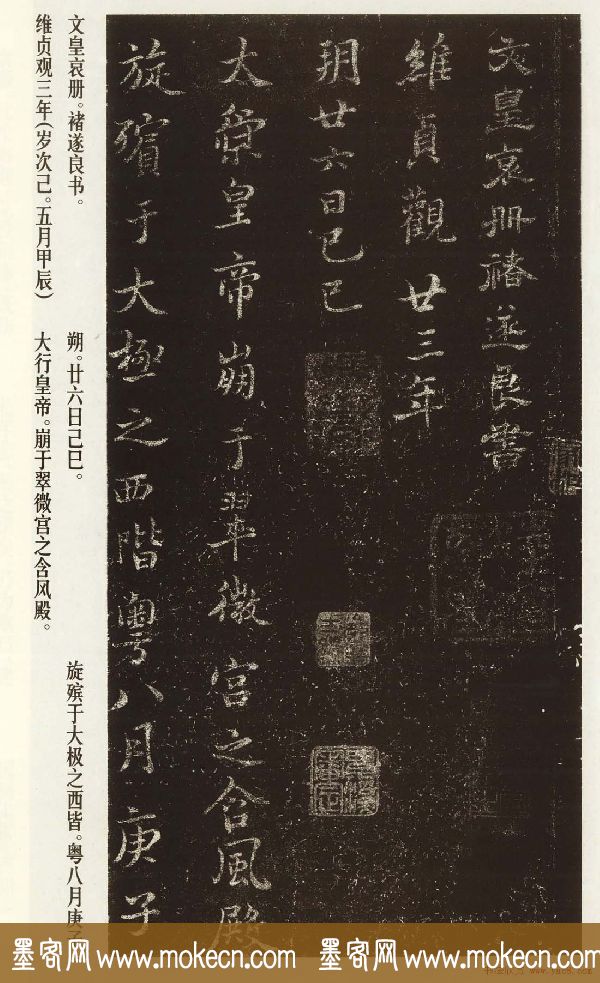 文皇哀册褚遂良書
維貞觀廿三年
朔廿六日己巳
大行皇帝崩于翠微宮之含風殿
旋殯于大極之西階粵八月庚子
文皇哀册。褚遂良书。
维贞观三年(岁次己。五月甲辰)
朔。廿六日己巳。
大行皇帝。崩于翠微宫之含风殿。
旋殡于大极之西皆。粤八月庚子
墨客网 www.mokecn.com 墨客网 www.mokecn.com